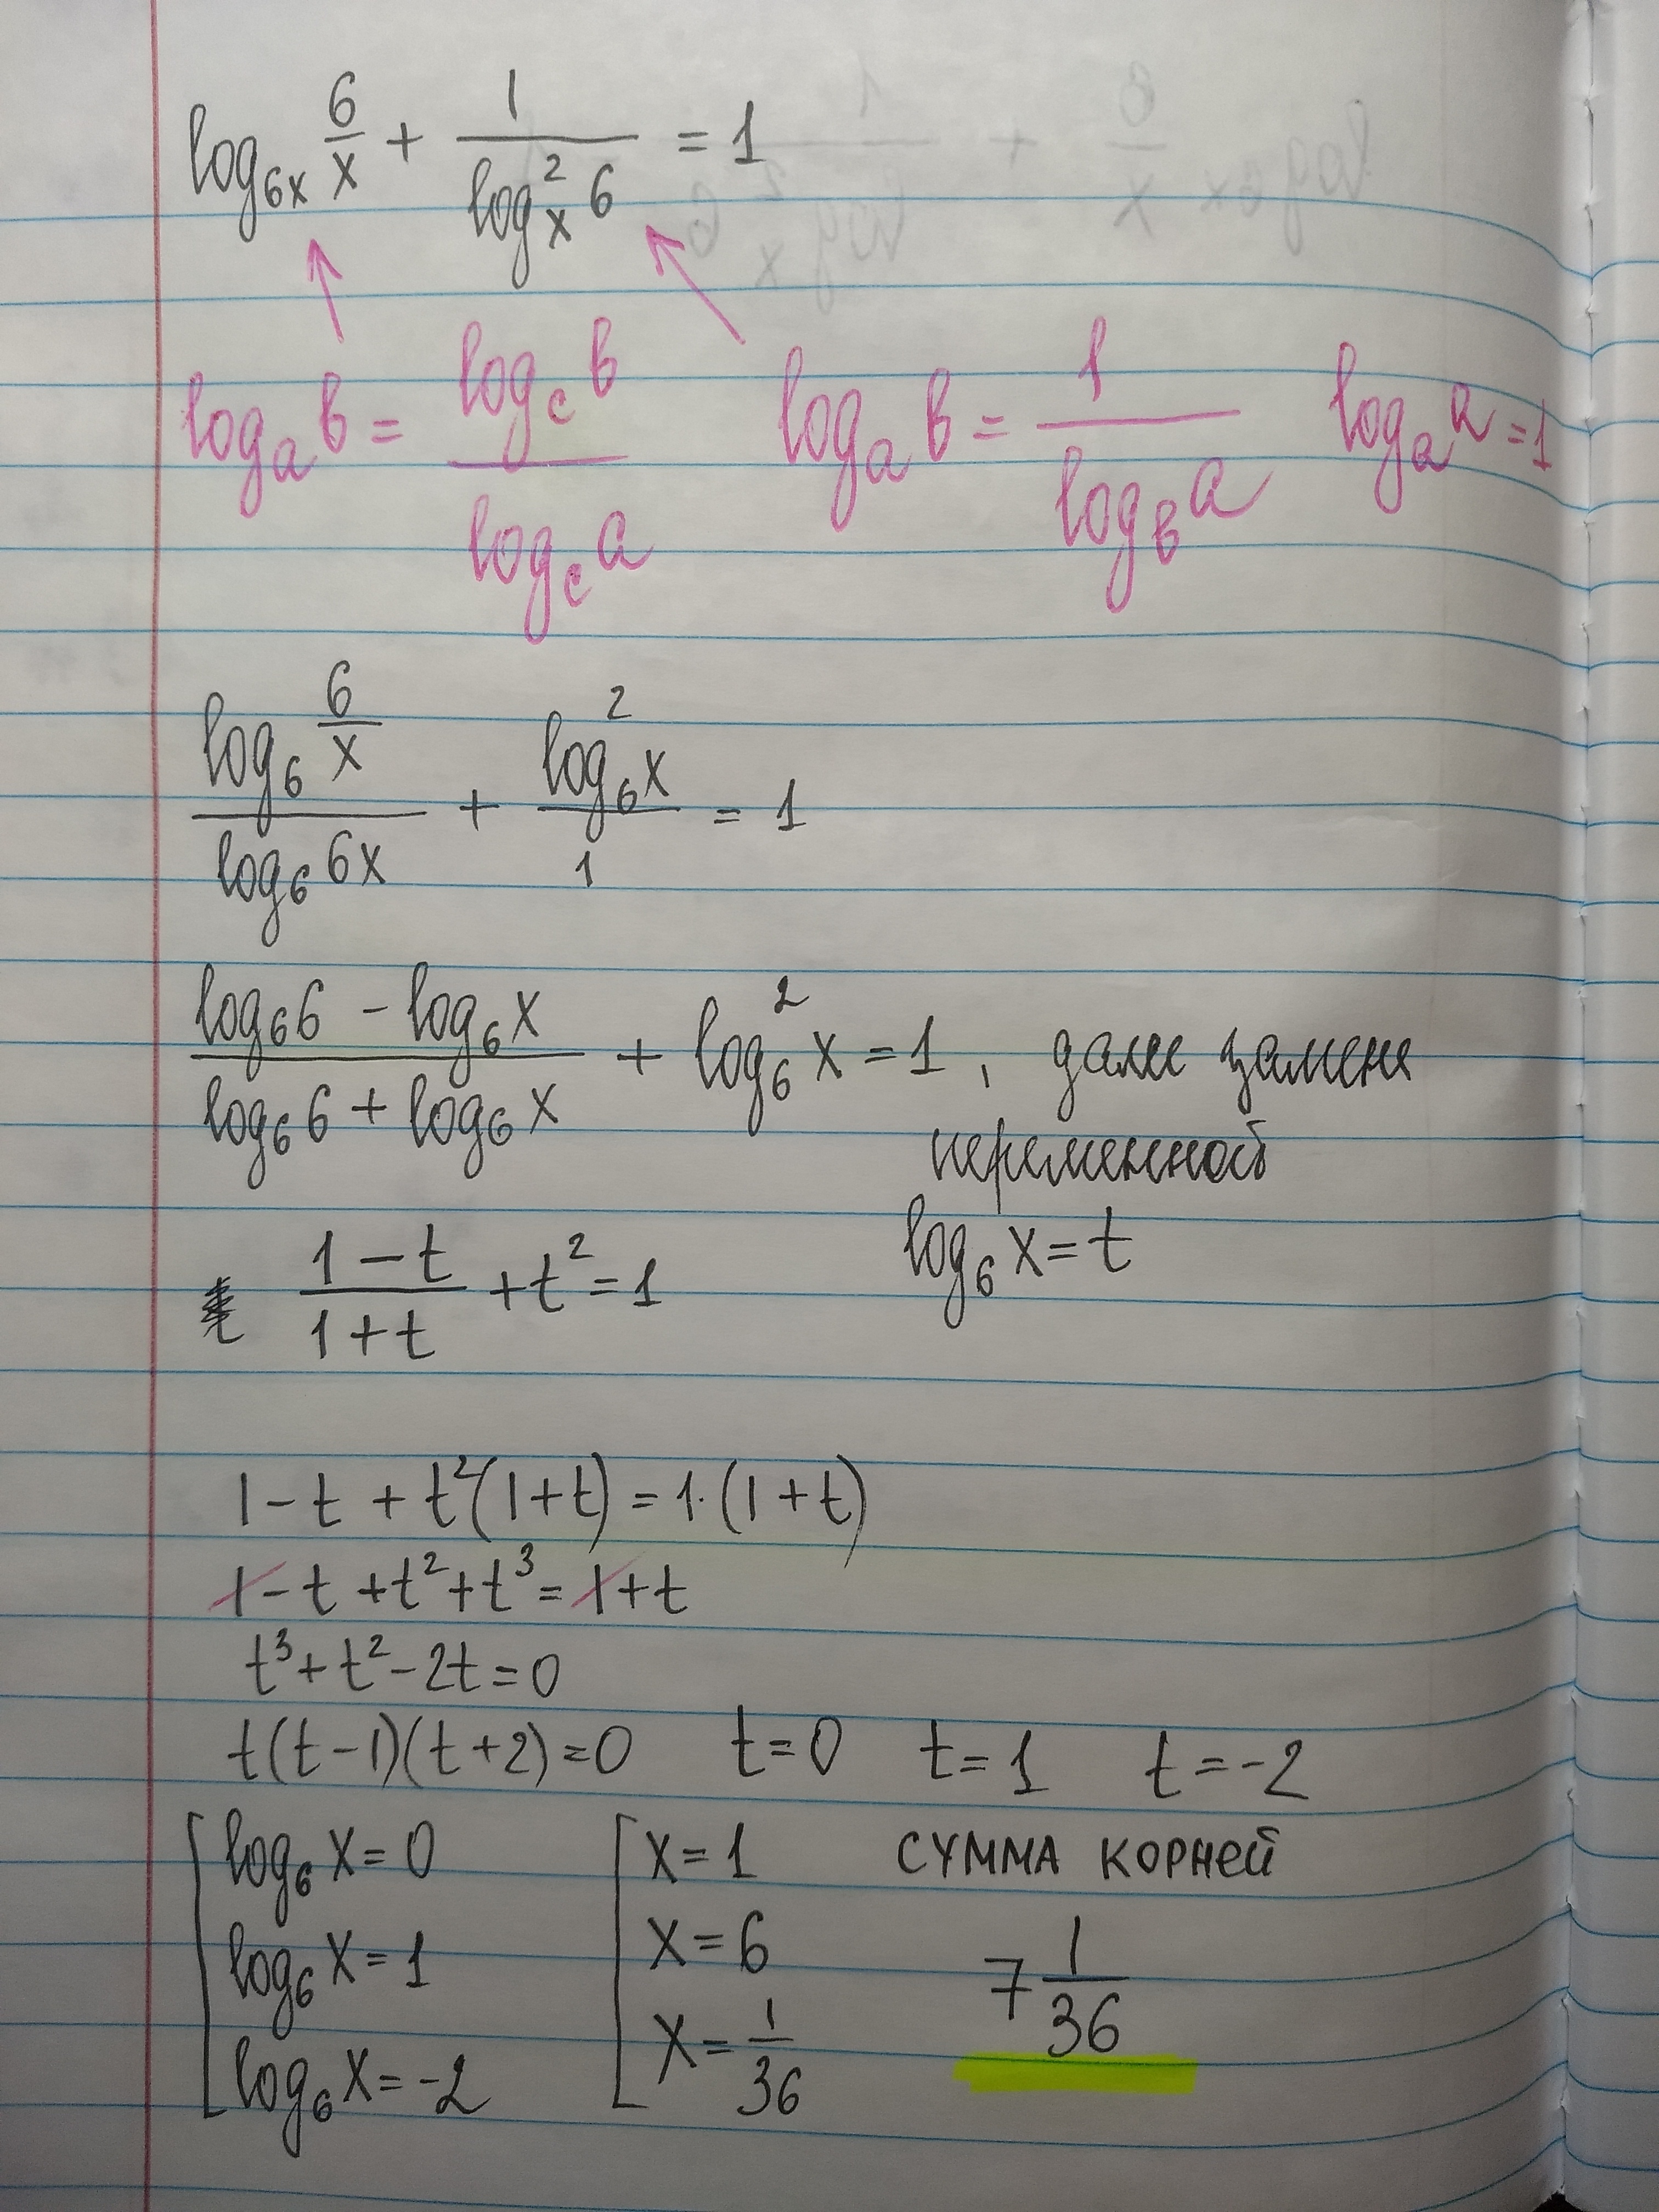 log₆ₓ 6/x + 1/log²ₓ 6 = 1
logₐ в = log_c в / log_c a   logₐ в = 1 / log_в a   logₐ a = 1
log₆ 6/x / log₆ 6x + log₆² x / 1 = 1
(log₆ 6 - log₆ x) / (log₆ 6 + log₆ x) + log₆² x = 1, далее замена
переменной
log₆ x = t
(1 - t) / (1 + t) + t² = 1
1 - t + t²(1 + t) = 1·(1 + t)
1 - t + t² + t³ = 1 + t
t³ + t² - 2t = 0
t(t - 1)(t + 2) = 0   t = 0   t = 1   t = -2
log₆ x = 0   x = 1   сумма корней
log₆ x = 1   x = 6   7 1/36
log₆ x = -2   x = 1/36